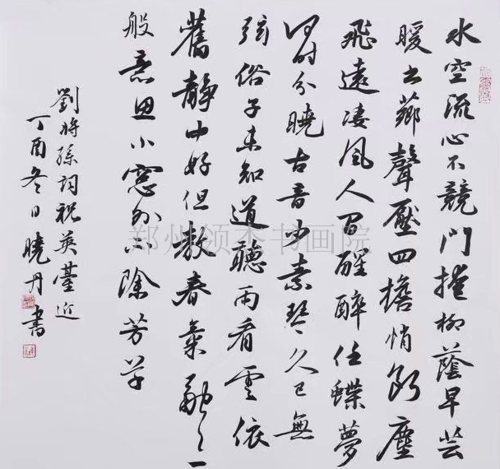 水空流心不競門掩柳蔭早芸
暖书薌聲壓四檐悄斷塵
飛遠凄风人间醒醉任蝶夢
何时分曉古音少素琴久已無
弦俗子未知道聽雨看雲依
舊静中好但教春氣融々一
般意思小窓外不除芳草
劉將孫词祝英臺近
丁酉冬日曉丹書
郑州颂本书画院